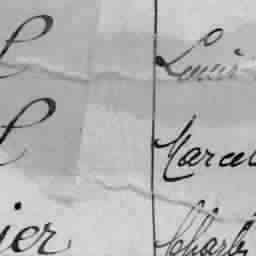 l Louis
l Marcel
ier Charls